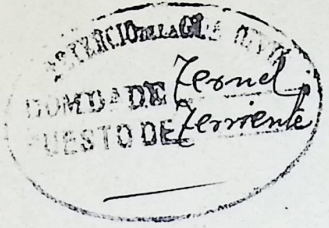 TERCIO DE LA GUARDIA CIVIL
COMDA DE Teruel
PUESTO DE Terriente